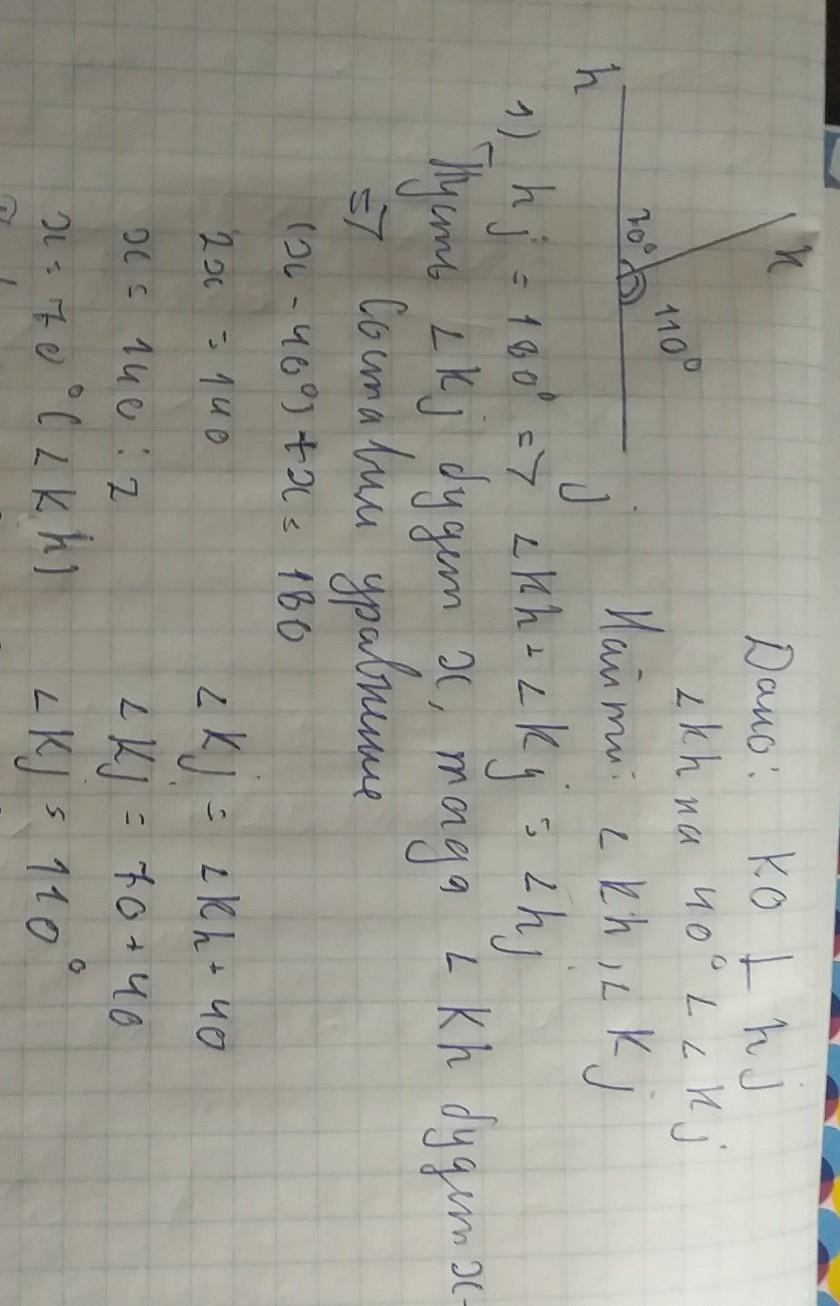 Дано: KO ⊥ hj
∠kh на 40° ∠ ∠kj
Найти: ∠kh, ∠kj
k
70° 110°
h j
1) hj = 180° => ∠kh + ∠kj = ∠hj
Пусть ∠kj будет x, тогда ∠kh будет x-
=> Составим уравнение
(x - 40°) + x = 180
2x = 140
x = 140 : 2
x = 70° (∠kh)
∠kj = ∠kh + 40
∠kj = 70 + 40
∠kj = 110°